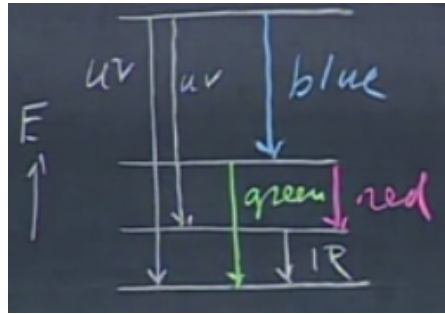 uv
uv
blue
E
green
red
IR